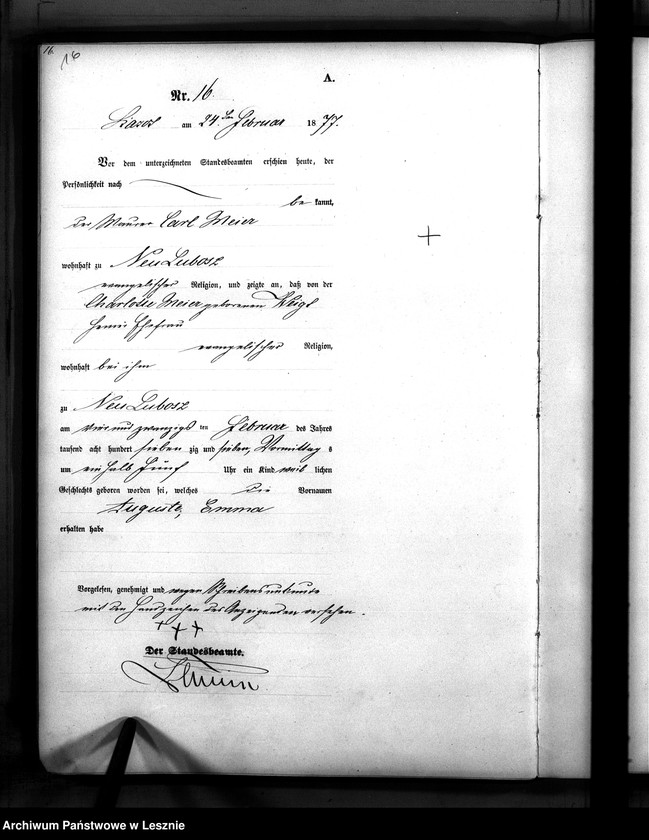 16.
16
A.
Nr. 16.
am 24ten Februar 1877.
Vor dem unterzeichneten Standesbeamten erschien heute, der
Persönlichkeit nach
be kannt,
der Maurer Carl Meier
wohnhaft zu Neu Lubosz
evangelischer Religion, und zeigte an, daß von der
Charlotte Meier geborenen Voigt
seiner Ehefrau
evangelischer Religion,
wohnhaft bei ihm
zu Neu Lubosz
am vier und zwanzigs ten Februar des Jahres
tausend acht hundert sieben zig und sieben, Vormittag s
um ein halb fünf Uhr ein Kind weib lichen
Geschlechts geboren worden sei, welches die Vornamen
Auguste, Emma
erhalten habe
Vorgelesen, genehmigt und wegen Schreibensunkunde
mit den Handzeichen des Anzeigenden versehen.
+ + +
Der Standesbeamte.
+
Archiwum Państwowe w Lesznie